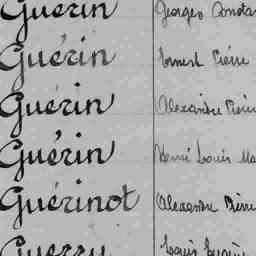 Guérin Georges
Guérin Ernest Pierre
Guérin Alexandre Pierre
Guérin Henri Louis
Guérinot Alexandre Pierre
Guerry Louis Eugène